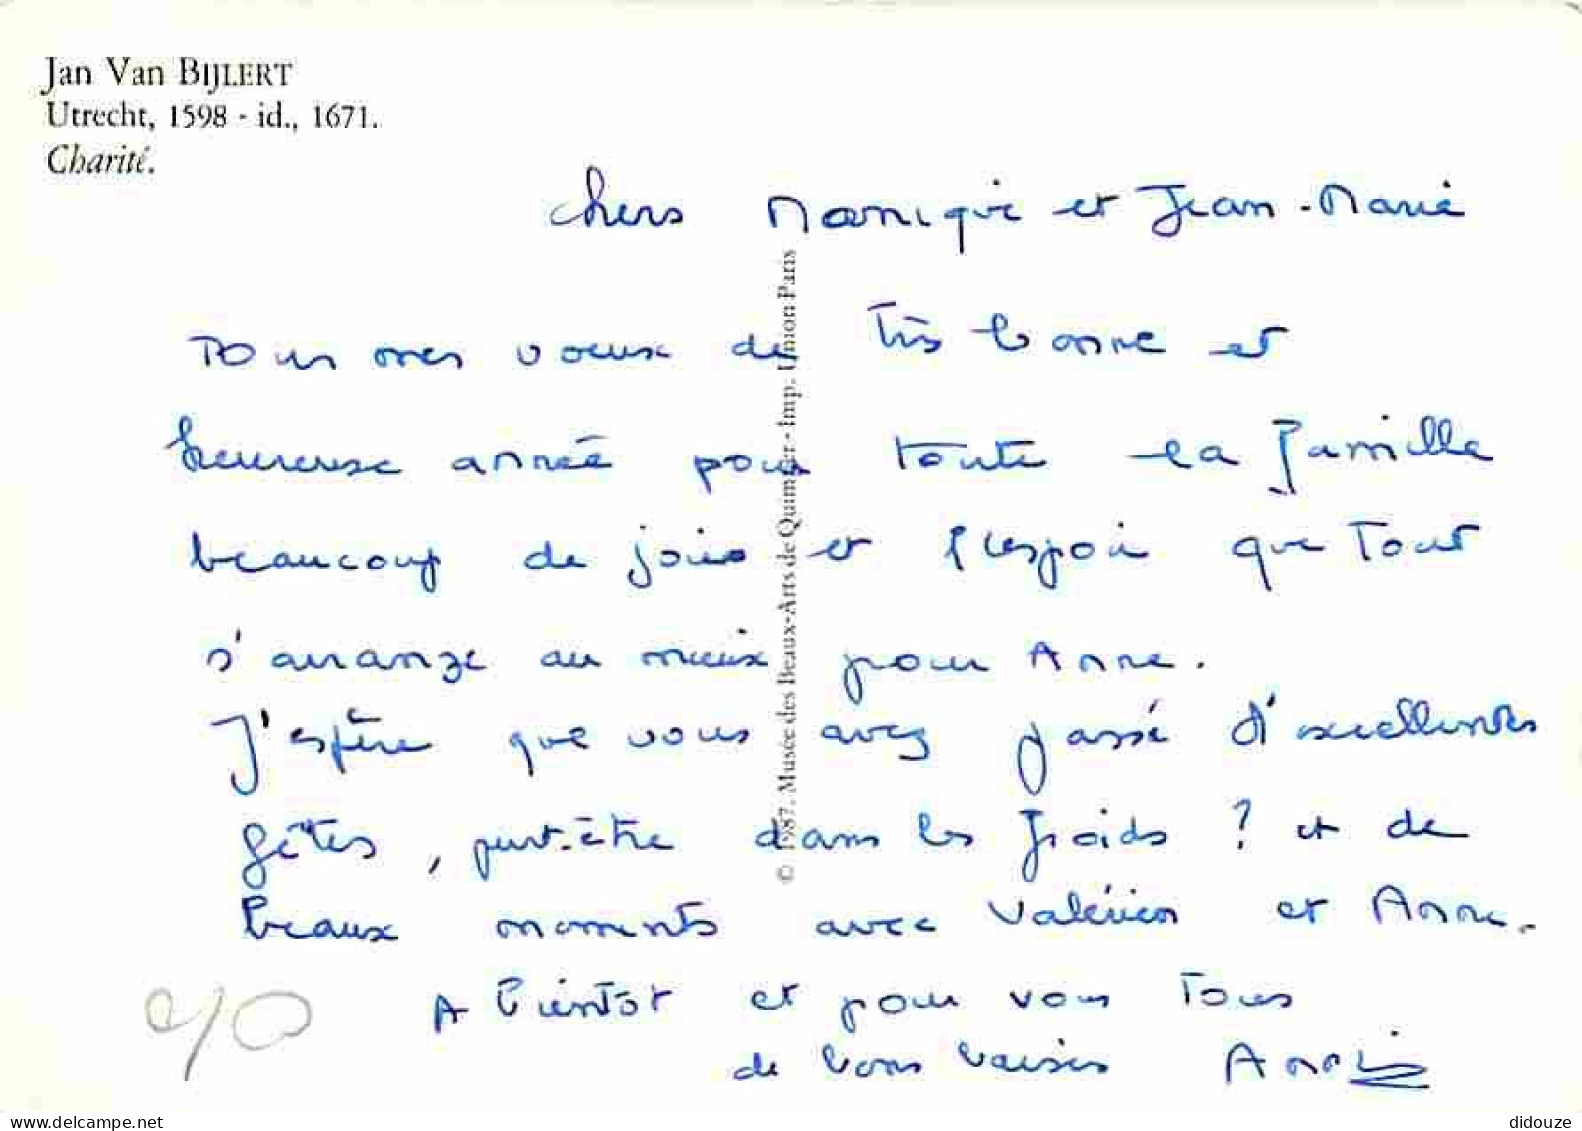 Jan Van BIJLERT
Utrecht, 1598 - id., 1671.
Charité.
chers Monique et Jean-Marie
Tous mes voeux de très bonne et
heureuse année pour toute la famille
beaucoup de joies et l'espoir que tout
s'arrange au mieux pour Anne.
J'espère que vous avez passé d'excellentes
fêtes, peut-être dans les froids ? et de
beaux moments avec Valérien et Anne.
A bientôt et pour vous tous
de bons baisers Annie
© 1987. Musée des Beaux-Arts de Quimper - Imp. Union Paris
www.delcampe.net
didouze